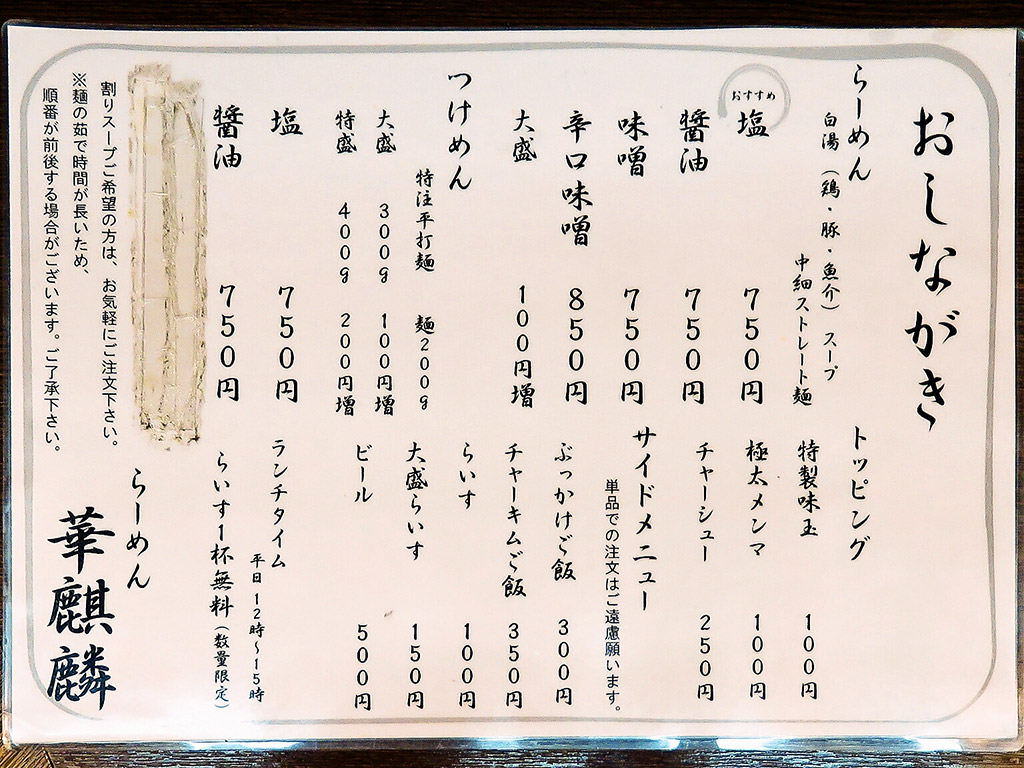 おしながき
らーめん
白湯（鶏・豚・魚介）スープ
中細ストレート麺
おすすめ
塩 750円
醤油 750円
味噌 750円
辛口味噌 850円
大盛 100円増
つけめん
特注平打麺 麺200g
大盛 300g 100円増
特盛 400g 200円増
塩 750円
醤油 750円
割りスープご希望の方は、お気軽にご注文下さい。
※麺の茹で時間が長いため、
順番が前後する場合がございます。ご了承下さい。
トッピング
特製味玉 100円
極太メンマ 100円
チャーシュー 250円
サイドメニュー
単品での注文はご遠慮願います。
ぶっかけご飯 300円
チャーキムご飯 350円
らいす 100円
大盛らいす 150円
ビール 500円
ランチタイム
平日 12時～15時
らいす1杯無料（数量限定）
らーめん
華麒麟